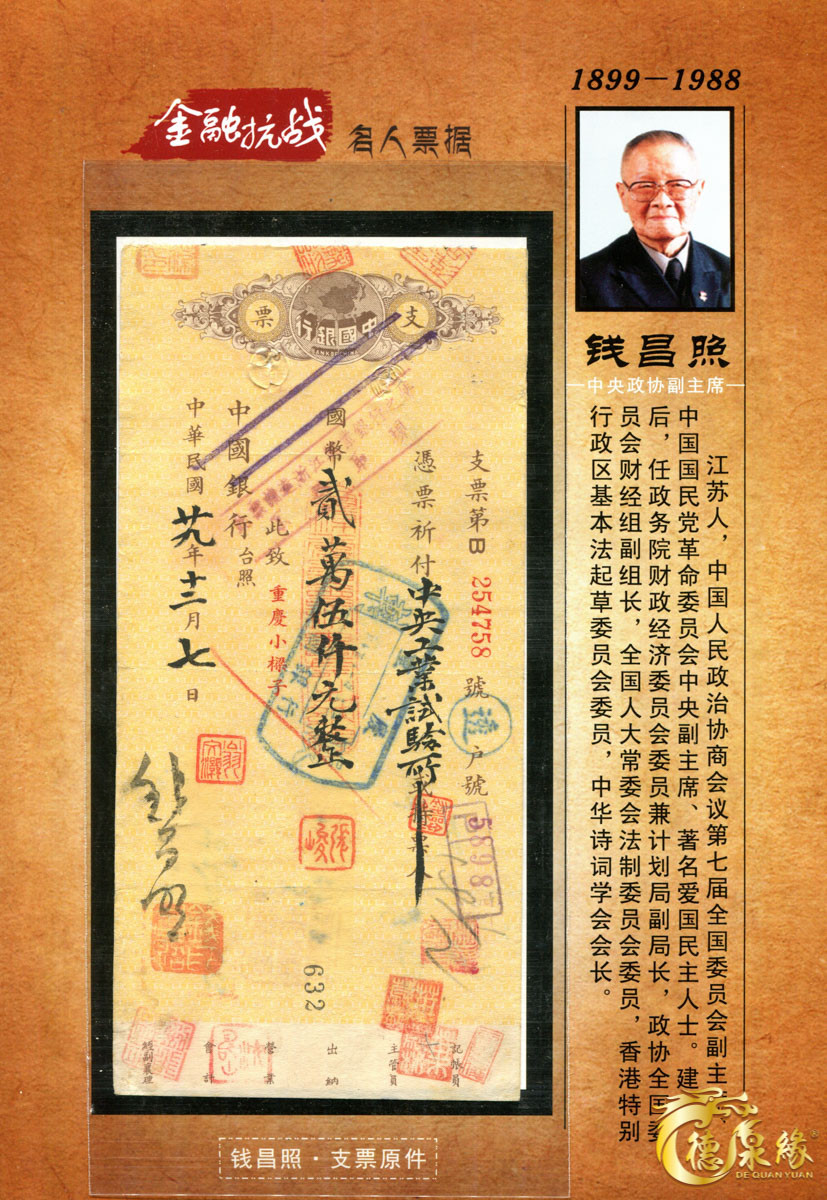 1899－1988
金融抗战 名人票据
钱昌照
中央政协副主席
江苏人，中国人民政治协商会议第七届全国委员会副主
中国国民党革命委员会中央副主席、著名爱国民主人士。建
后，任政务院财政经济委员会委员兼计划局副局长，政协全国委
员会财经组副组长，全国人大常委会法制委员会委员，香港特别
行政区基本法起草委员会委员，中华诗词学会会长。
中國銀行
BANK OF CHINA
支票
支票第B 254758 號 户號 5898
憑票祈付中央工業試驗所或持票人
國幣貳萬伍仟元整
此致
重慶小樑子
中國銀行台照
中華民國廿九年十二月七日
翁文灝
張峻
钱昌照
632
記帳員
主管員
出納
營業
會計
經副襄理
钱昌照·支票原件
德泉緣
DE QUAN YUAN